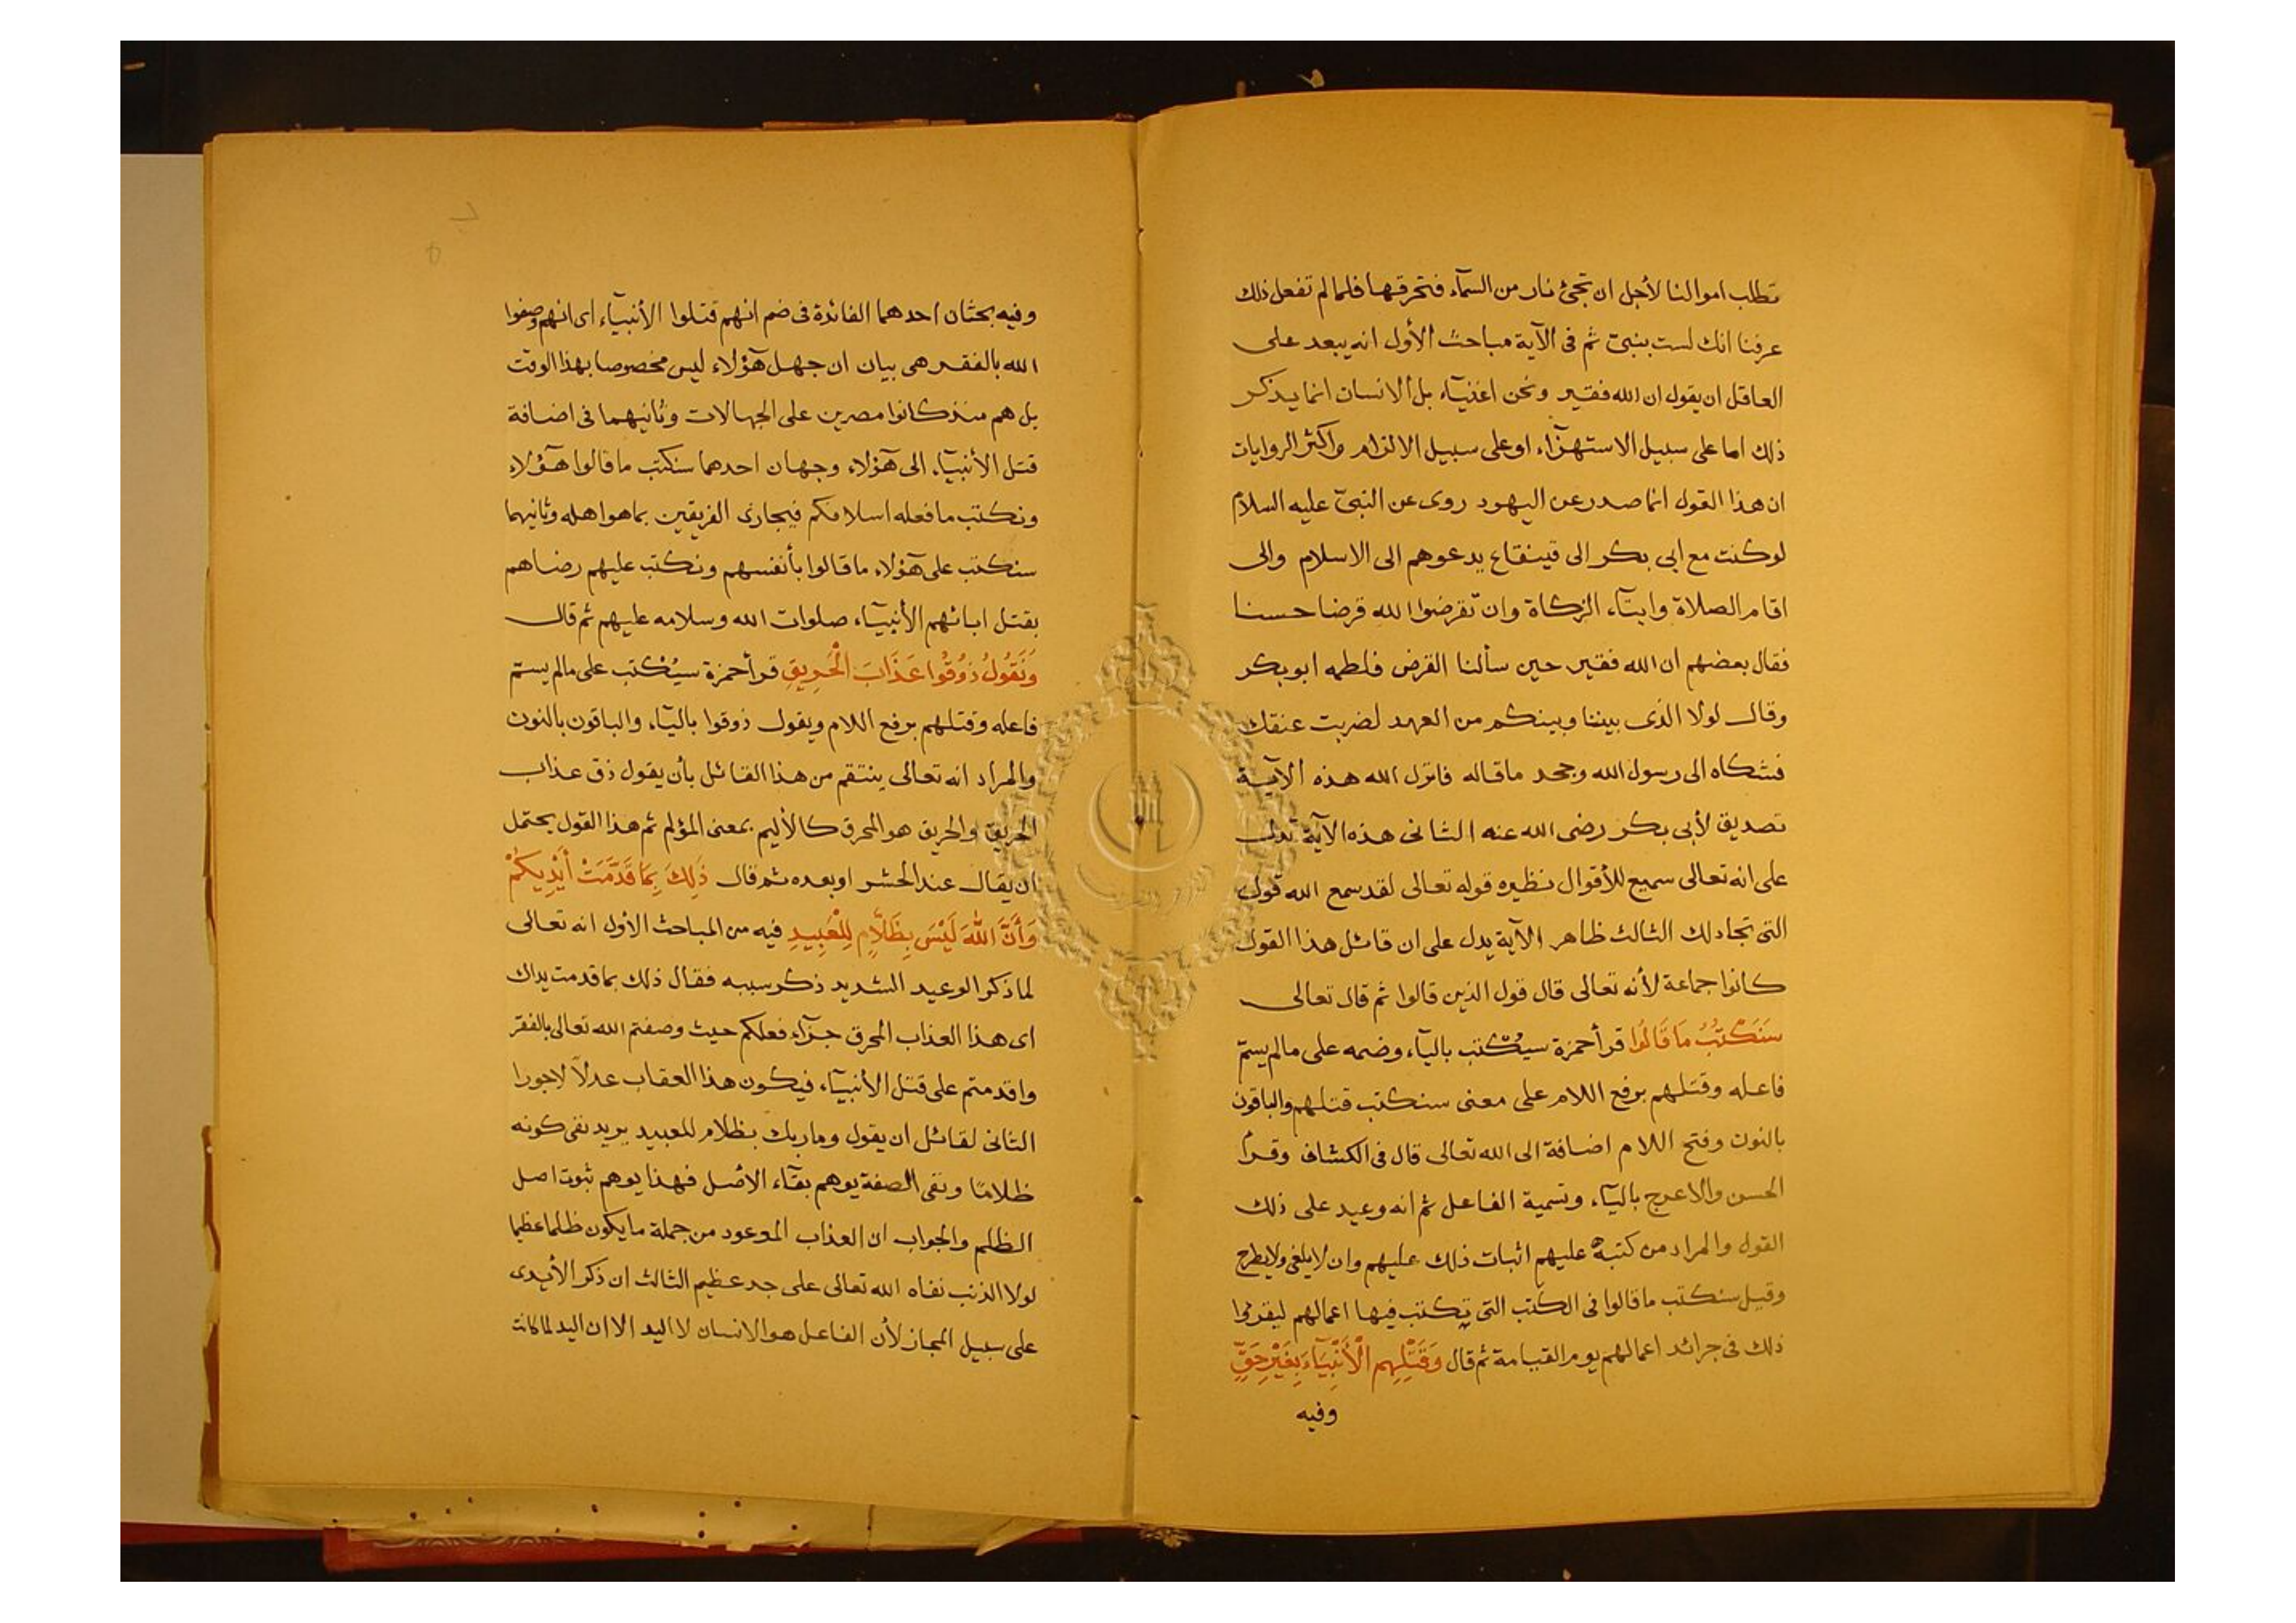 تطلب اموالنا لأجل ان تجئ نار من السمآء فتحرقها فلما لم تفعل ذلك
عرفنا انك لست بنبىّ ثم فى الآية مباحث الأول انه يبعد على
العاقل ان يقول ان الله فقير ونحن اغنيآء بل الانسان انما يذكر
ذلك اما على سبيل الاستهزآء او على سبيل الالزام واكثر الروايات
ان هذا القول انما صدر عن اليهود روى عن النبىّ عليه السلام
لو كنت مع ابى بكر الى قينقاع يدعوهم الى الاسلام والى
اقام الصلاة وايتآء الزكاة وان تقرضوا الله قرضا حسنا
فقال بعضهم ان الله فقير حين سألنا القرض فلطمه ابو بكر
وقال لولا الذى بيننا وبينكم من العهد لضربت عنقك
فشكاه الى رسول الله وجحد ماقاله فانزل الله هذه الآية
تصديق لأبى بكر رضى الله عنه الثانى هذه الآية تدل
على انه تعالى سميع للأقوال نظيره قوله تعالى لقد سمع الله قول
التى تجادلك الثالث ظاهر الآية يدل على ان قائل هذا القول
كانوا جماعة لأنه تعالى قال قول الذين قالوا ثم قال تعالى
سَنَكْتُبُ مَا قَالُوا قرأ حمزة سيُكتب باليآء وضمه على مالم يسمّ
فاعله وقتلهم برفع اللام على معنى سنكتب قتلهم والباقون
بالنون وفتح اللام اضافة الى الله تعالى قال فى الكشاف وقرأ
الحسن والاعرج باليآء وتسمية الفاعل ثم انه وعيد على ذلك
القول والمراد من كتبه عليهم اثبات ذلك عليهم وان لا يلغى ولا يطرح
وقيل سنكتب ماقالوا فى الكتب التى تكتب فيها اعمالهم ليقرؤا
ذلك فى جرائد اعمالهم يوم القيامة ثم قال وَقَتْلِهِم الْأَنْبِيَآءَ بِغَيْرِ حَقٍّ
وفيه
وفيه بحثان احدهما الفائدة فى ضم انهم قتلوا الأنبيآء اى انهم وصفوا
الله بالفقر هى بيان ان جهل هٓؤلاء ليس مخصوصا بهذا الوقت
بل هم منذ كانوا مصرين على الجهالات وثانيهما فى اضافة
قتل الأنبيآء الى هٓؤلاء وجهان احدهما سنكتب ماقالوا هٓؤلاء
ونكتب مافعله اسلافكم فيجازى الفريقين بما هو اهله وثانيهما
سنكتب على هٓؤلاء ماقالوا بأنفسهم ونكتب عليهم رضاهم
بقتل ابائهم الأنبيآء صلوات الله وسلامه عليهم ثم قال
وَنَقُولُ ذُوقُوا عَذَابَ الْحَرِيقِ قرأ حمزة سيُكتب على مالم يسمّ
فاعله وقتلهم برفع اللام ويقول ذوقوا باليآء والباقون بالنون
والمراد انه تعالى ينتقم من هذا القائل بأن يقول ذق عذاب
الحريق والحريق هو المحرق كالأليم بمعنى المؤلم ثم هذا القول يحتمل
ان يقال عند الحشر او بعده ثم قال ذَلِكَ بِمَا قَدَّمَتْ أَيْدِيكُمْ
وَأَنَّ اللهَ لَيْسَ بِظَلَّامٍ لِلْعَبِيدِ فيه من المباحث الاول انه تعالى
لما ذكر الوعيد الشديد ذكر سببه فقال ذلك بما قدمت يداك
اى هذا العذاب المحرق جزآء فعلكم حيث وصفتم الله تعالى بالفقر
واقدمتم على قتل الأنبيآء فيكون هذا العقاب عدلًا لا جورا
الثانى لقائل ان يقول وماربك بظلام للعبيد يريد نفى كونه
ظلامًا ونفى الصفة يوهم بقآء الأصل فهذا يوهم ثبوت اصل
الظلم والجواب ان العذاب الموعود من جملة مايكون ظلما عظيما
لولا الذنب نفاه الله تعالى على حد عظيم الثالث ان ذكر الأيدى
على سبيل المجاز لأن الفاعل هو الانسان لا اليد الا ان اليد لما كانت